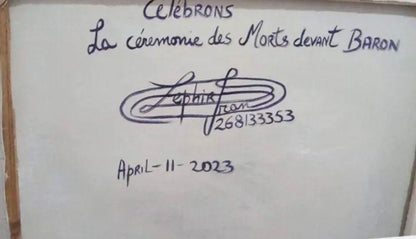 Celébrons
La céremonie des Morts devant BARON
Zephir Fran
268133353
APRIL-11-2023